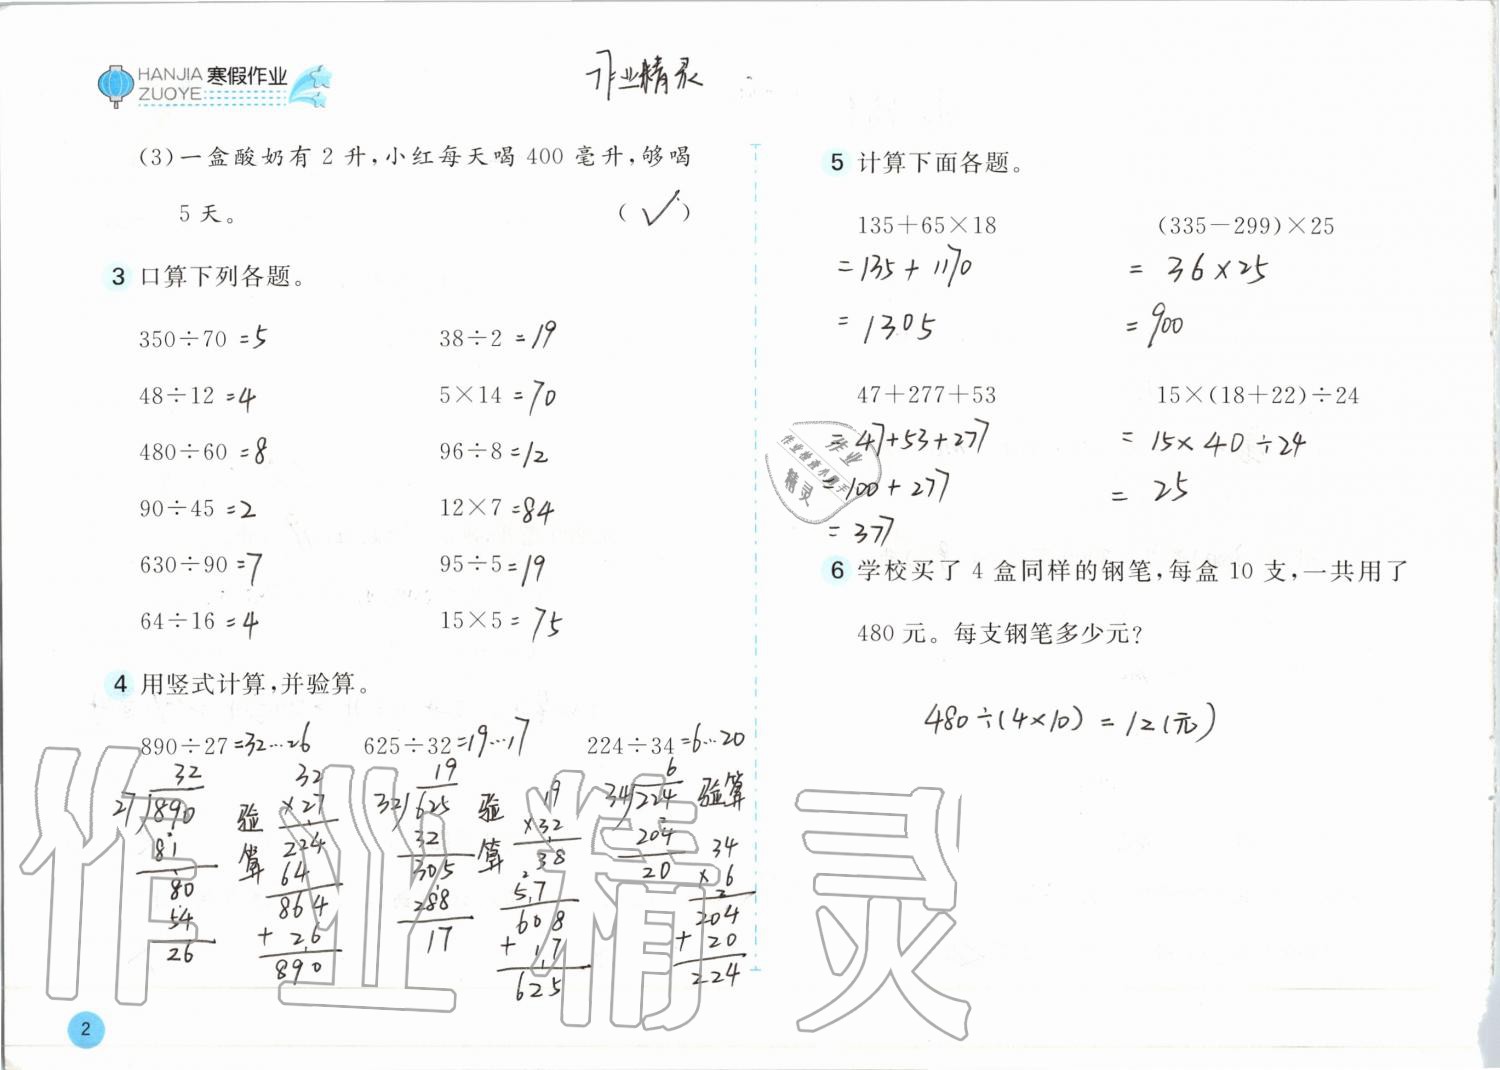 HANJIA 寒假作业
ZUOYE
作业精灵
(3)一盒酸奶有 2 升,小红每天喝 400 毫升,够喝
5 天。 (✓)
3 口算下列各题。
350÷70 =5 38÷2 =19
48÷12 =4 5×14 =70
480÷60 =8 96÷8 =12
90÷45 =2 12×7 =84
630÷90 =7 95÷5 =19
64÷16 =4 15×5 =75
4 用竖式计算,并验算。
890÷27 =32…26 625÷32 =19…17 224÷34 =6…20
32
27 890
81
80
54
26
验算
32
×27
224
64
864
+ 26
890
19
32 625
32
305
288
17
验算
19
×32
38
57
608
+ 17
625
6
34 224
204
20
验算
34
× 6
204
+ 20
224
2
5 计算下面各题。
135+65×18 (335-299)×25
=135+1170 = 36×25
=1305 =900
47+277+53 15×(18+22)÷24
=47+53+277 =15×40÷24
=100+277 = 25
=377
6 学校买了 4 盒同样的钢笔,每盒 10 支,一共用了
480 元。每支钢笔多少元?
480÷(4×10)=12(元)
作业
作业检查小助手
精灵
作业精灵